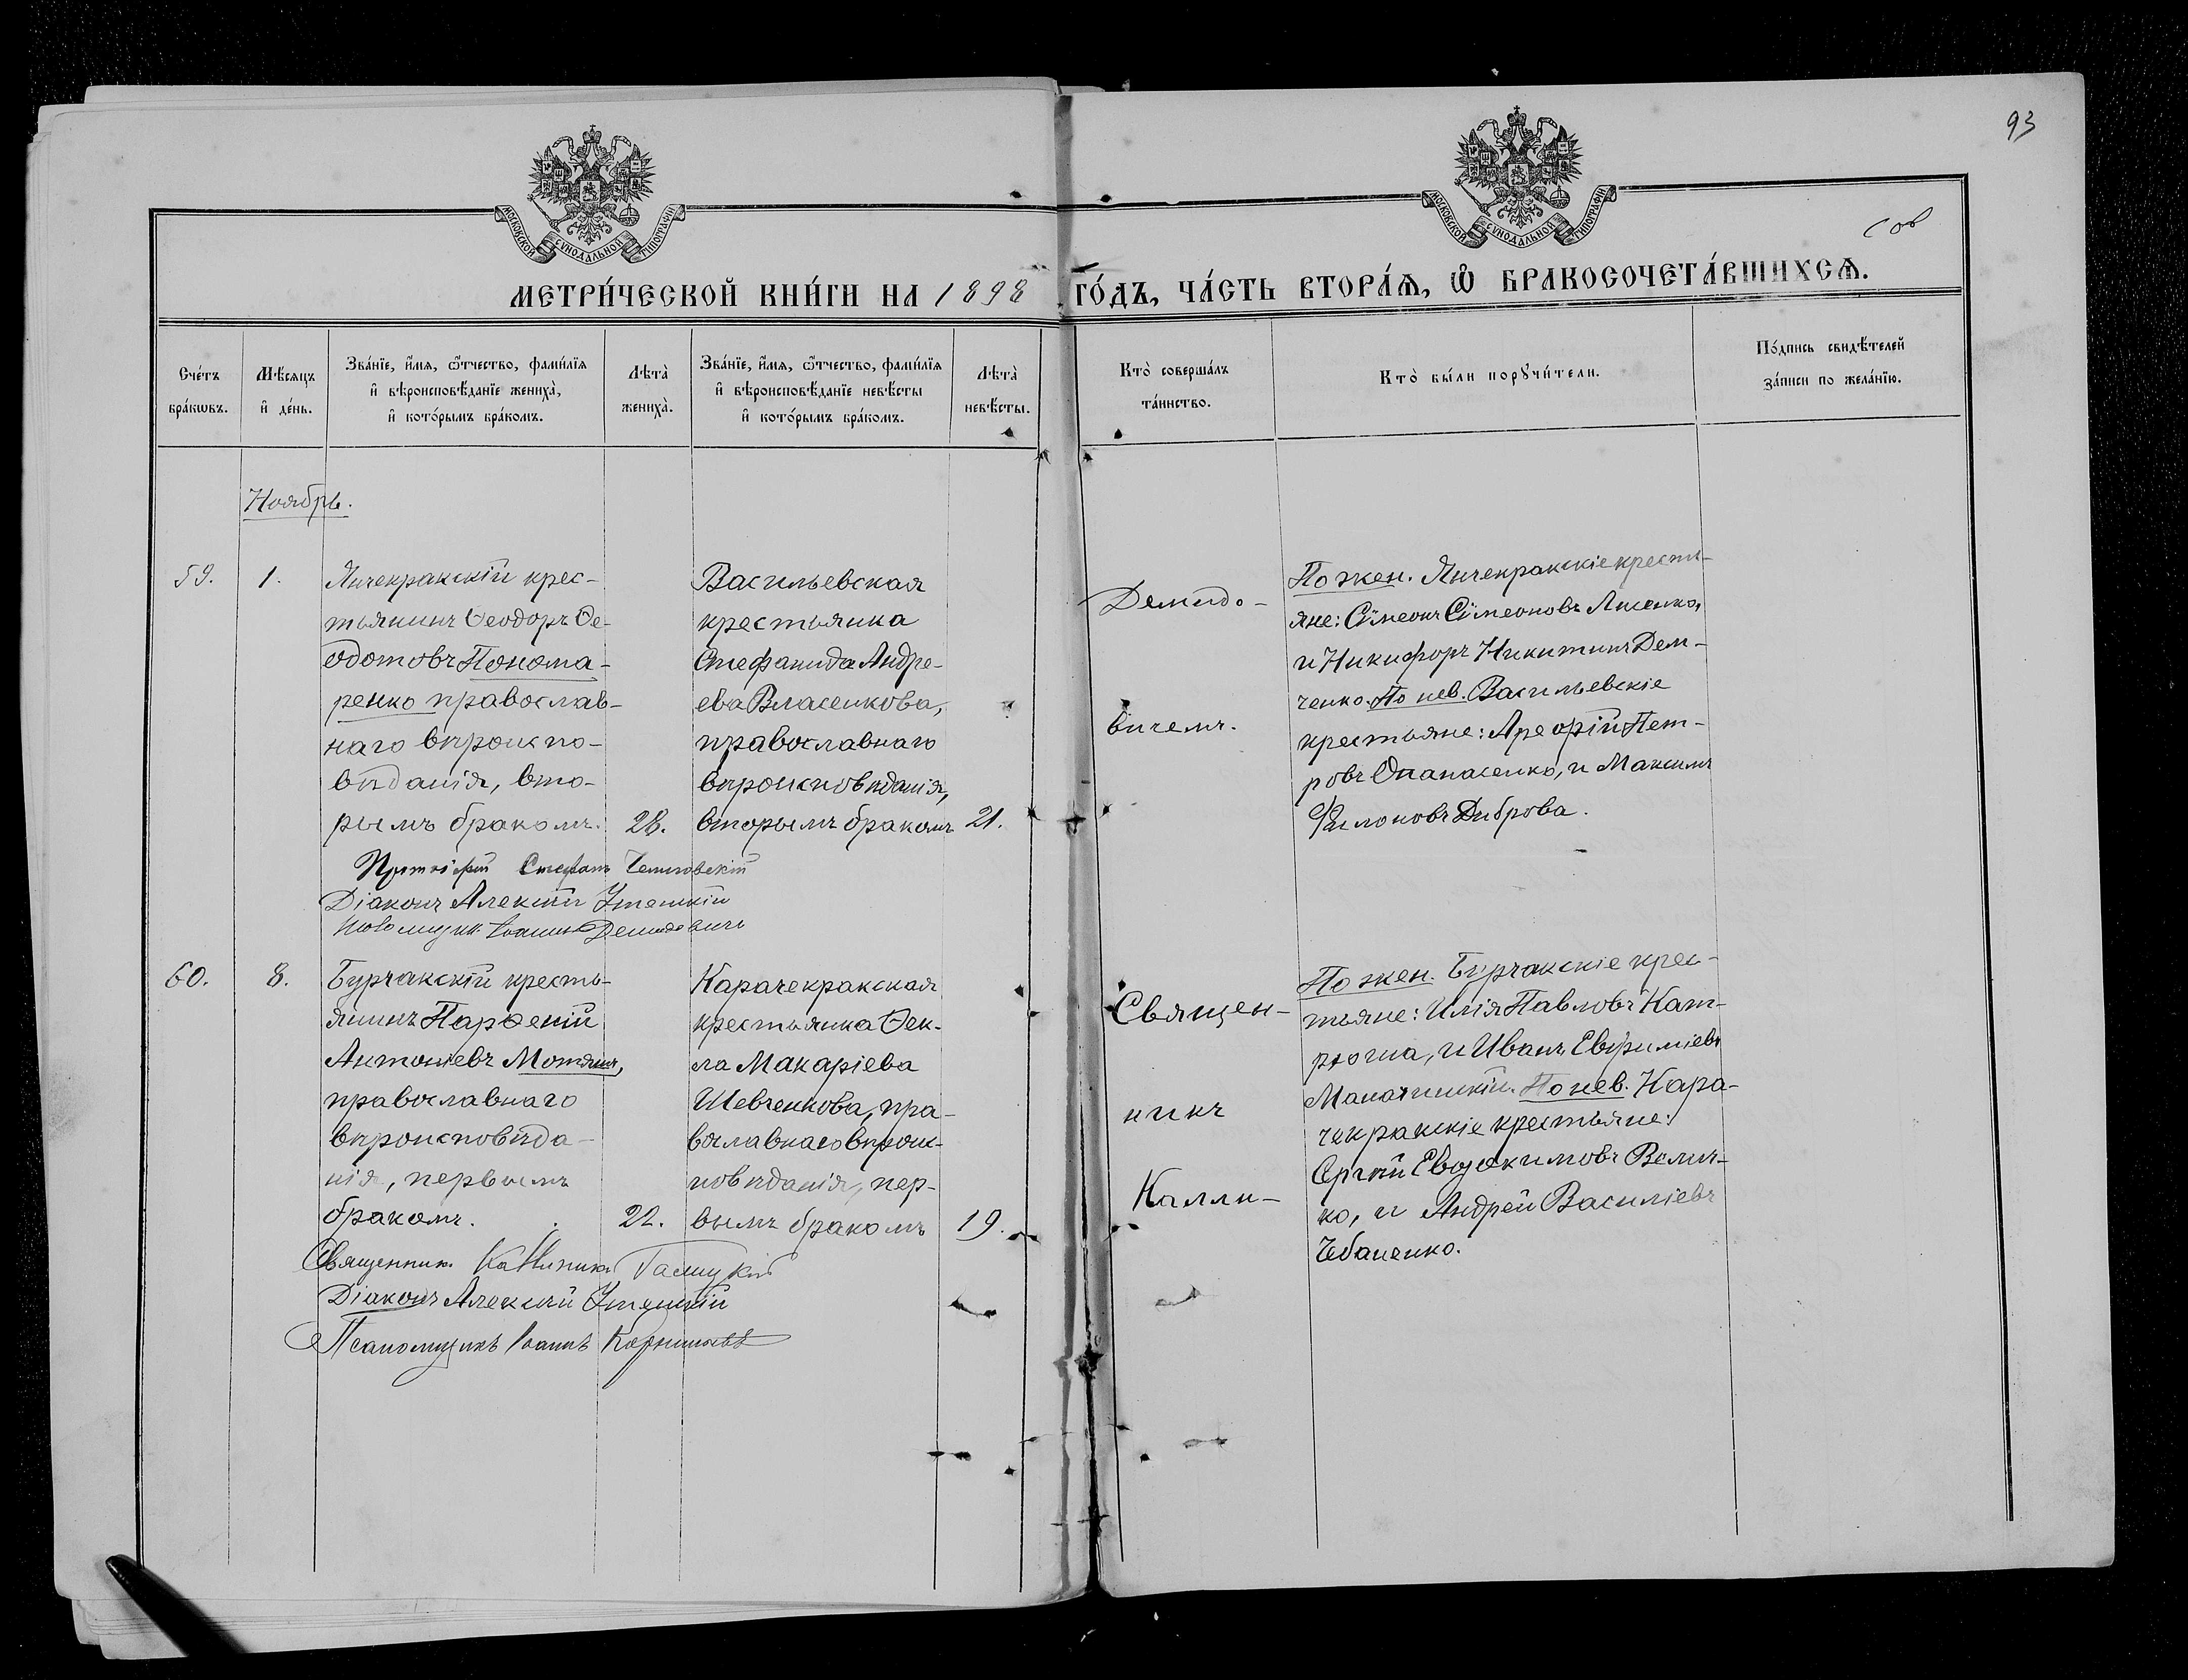 93
МОСКОВСКОЙ СУНОДАЛЬНОЙ ТИПОГРАФІИ
МОСКОВСКОЙ СУНОДАЛЬНОЙ ТИПОГРАФІИ
сов
МЕТРИ́ЧЕСКОЙ КНИ́ГИ НА 1898 ГО́ДЪ, ЧА́СТЬ ВТОРА́Ѧ, Ѡ҆ БРАКОСОЧЕТА́ВШИХСѦ.
Сче́тъ
бра́кѡвъ.
Мѣ́сѧцъ
и҆ де́нь.
Зва́нїе, и҆́мѧ, ѿтчество, фами́лїѧ
и҆ вѣроисповѣ́данїе жениха̀,
и҆ кото́рымъ бра́комъ.
Лѣта̀
жениха̀.
Зва́нїе, и҆́мѧ, ѿтчество, фами́лїѧ
и҆ вѣроисповѣ́данїе невѣ́сты
и҆ кото́рымъ бра́комъ.
Лѣта̀
невѣ́сты.
Кто̀ соверша́лъ
та́инство.
Кто̀ бы́ли порꙋчи́тели.
По́дпись свидѣ́телей
за́писи по жела́нїю.
Ноябрь.
59.
1.
Янчекракскій крес-
тьянинъ Ѳеодоръ Ѳе-
одотовъ Понома-
ренко православ-
наго вѣроиспо-
вѣданія, вто-
рымъ бракомъ.
28.
Васильевская
крестьянка
Стефанида Андре-
ева Власенкова,
православнаго
вѣроисповѣданія,
вторымъ бракомъ
21.
Демидо-
вичемъ.
По жен. Янчекракскіе кресть-
яне: Сѵмеонъ Сѵмеоновъ Лисенко,
и Никифоръ Никитинъ Дем-
ченко. По нев. Васильевскіе
крестьяне: Арефій Пет-
ровъ Опанасенко, и Максимъ
Филоновъ Диброва.
Стефанъ
Діаконъ Алексій
Іоаннъ Демидовичъ
60.
8.
Бурчакскій кресть-
янинъ Парѳеній
Антоніевъ Мотянъ,
православнаго
вѣроисповѣда-
нія, первымъ
бракомъ.
22.
Карачекракская
крестьянка Ѳек-
ла Макаріева
Шевченкова, пра-
вославнаго вѣроис-
повѣданія, пер-
вымъ бракомъ
19.
Священ-
никъ
Калли-
По жен. Бурчакскіе крес-
тьяне: Илія Павловъ Кат-
рюгиа, и Иванъ Евфиміевъ
По нев. Кара-
чекракскіе крестьяне:
Сергій Евдокимовъ Велич-
ко, и Андрей Василіевъ
Чебаненко.
Священникъ Каллиникъ Галицкій
Діаконъ Алексій
Псаломщикъ Іоаннъ